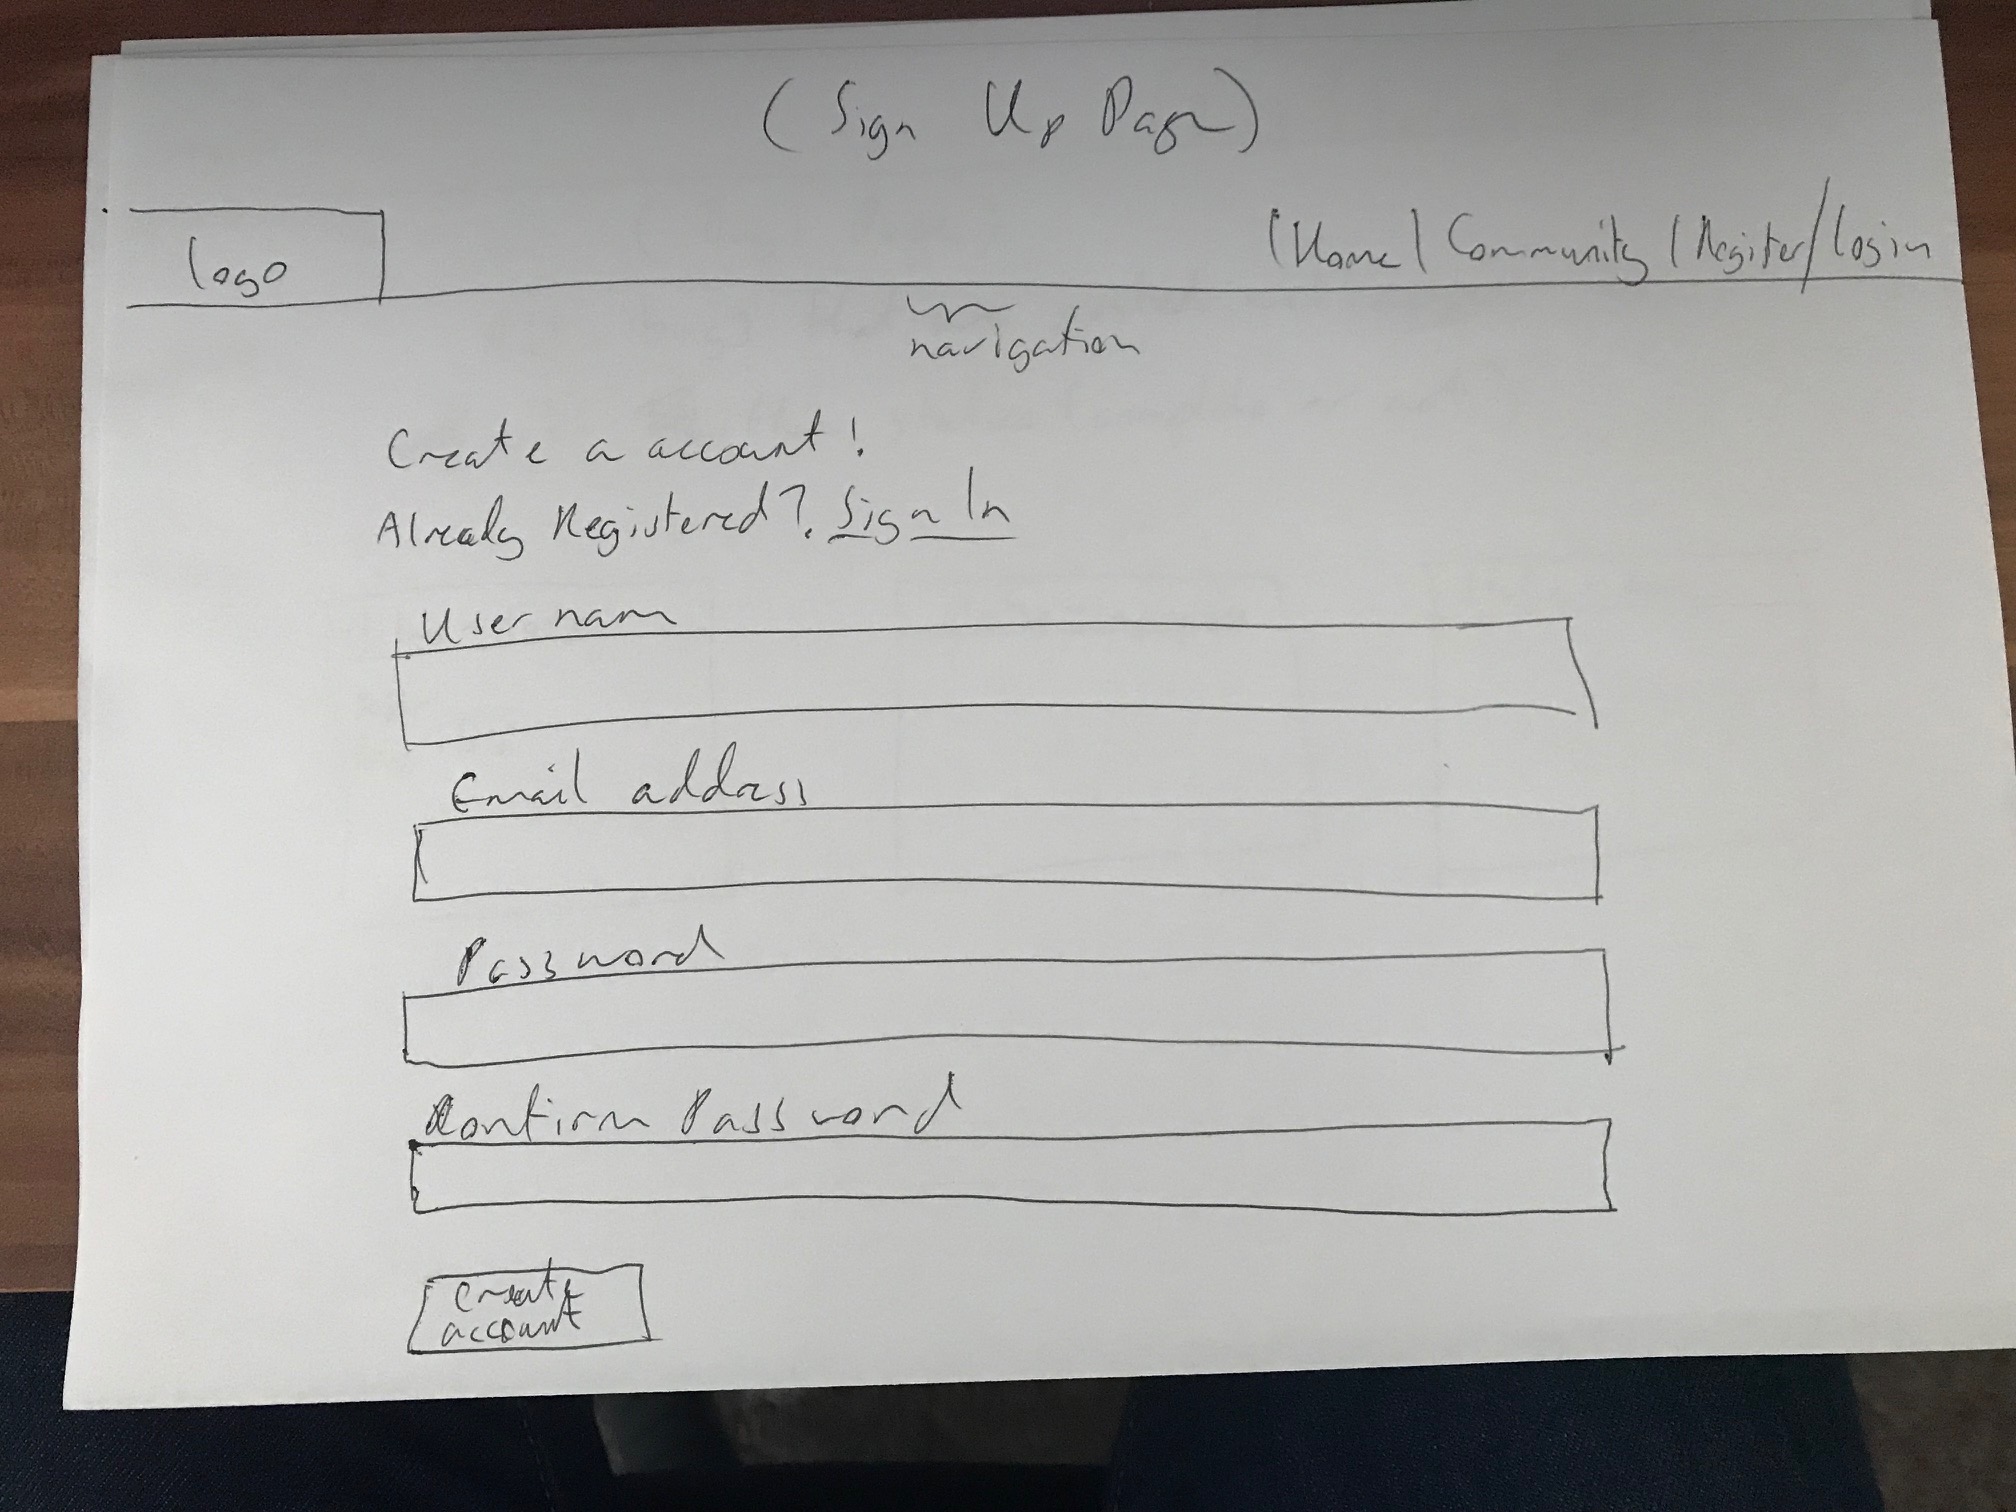 (Sign Up Page)
logo
| Home | Community | Register/login
navigation
Create a account!
Already Registered? Sign In
User nam
Email address
Password
Confirm Password
Create
account